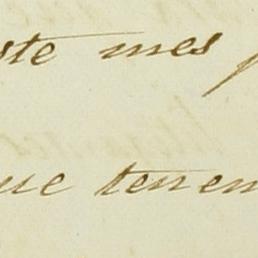 ste mes p
ue tenem